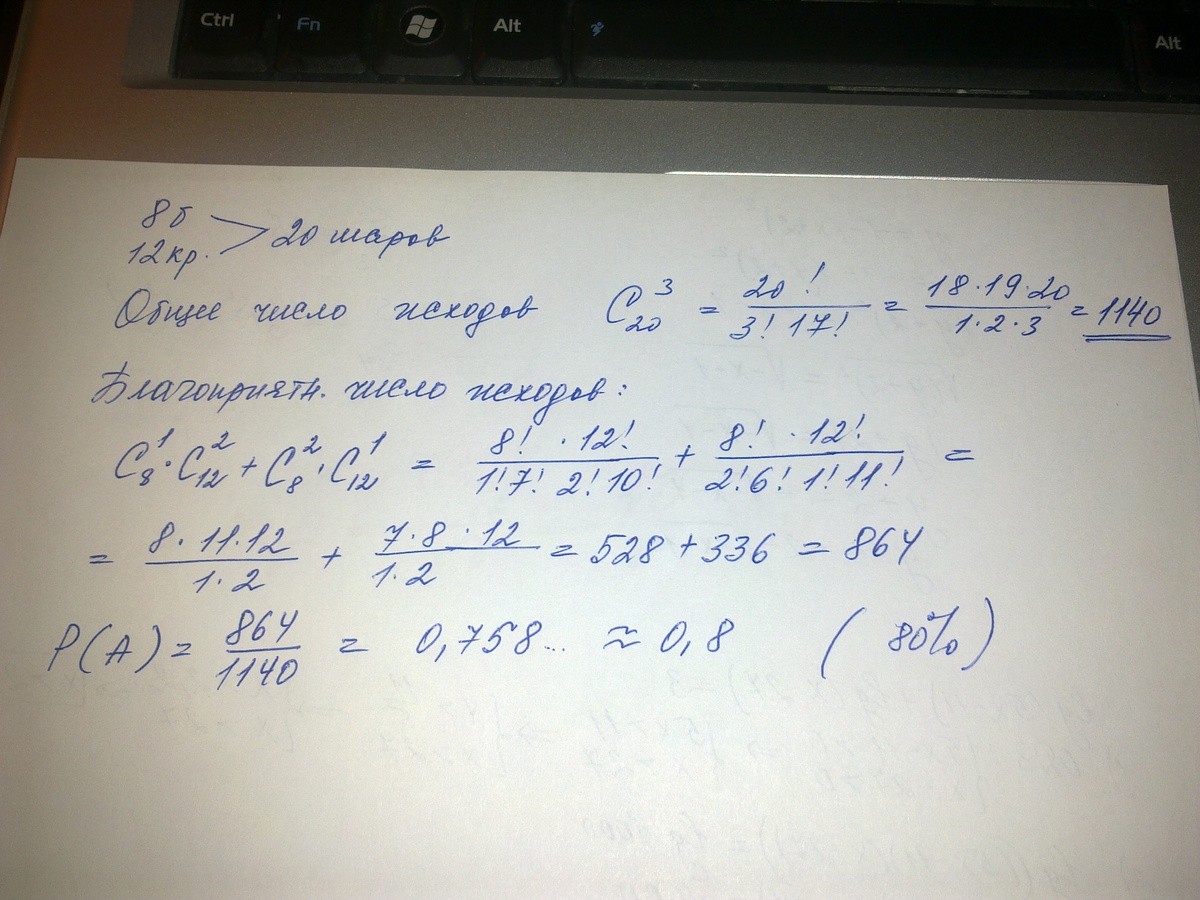 Ctrl Fn Alt Alt
8б
12кр. > 20 шаров
Общее число исходов C₂₀³ = 20! / 3! 17! = 18·19·20 / 1·2·3 = 1140
Благоприятн. число исходов:
C₈¹·C₁₂² + C₈²·C₁₂¹ = 8! · 12! / 1!7! 2!10! + 8! · 12! / 2!6! 1!11! =
= 8·11·12 / 1·2 + 7·8·12 / 1·2 = 528 + 336 = 864
P(A) = 864 / 1140 = 0,758... ≈ 0,8 (80%)